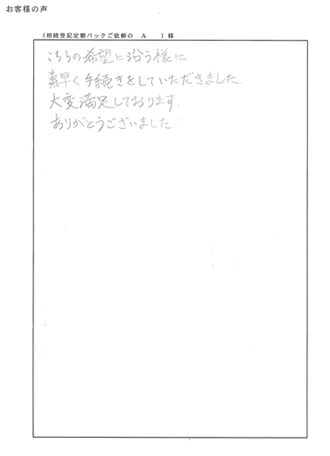 お客様の声
(相続登記定額パックご依頼の A )様
こちらの希望に沿う様に
素早く手続きをしていただきました
大変満足しております
ありがとうございました